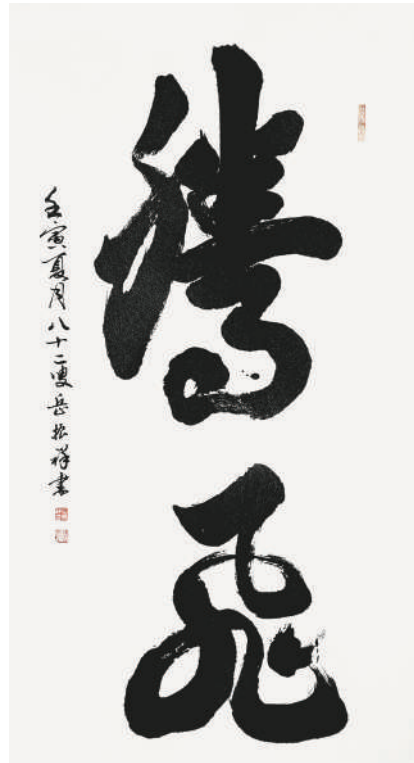 腾飞
壬寅夏月八十二叟岳振祥书